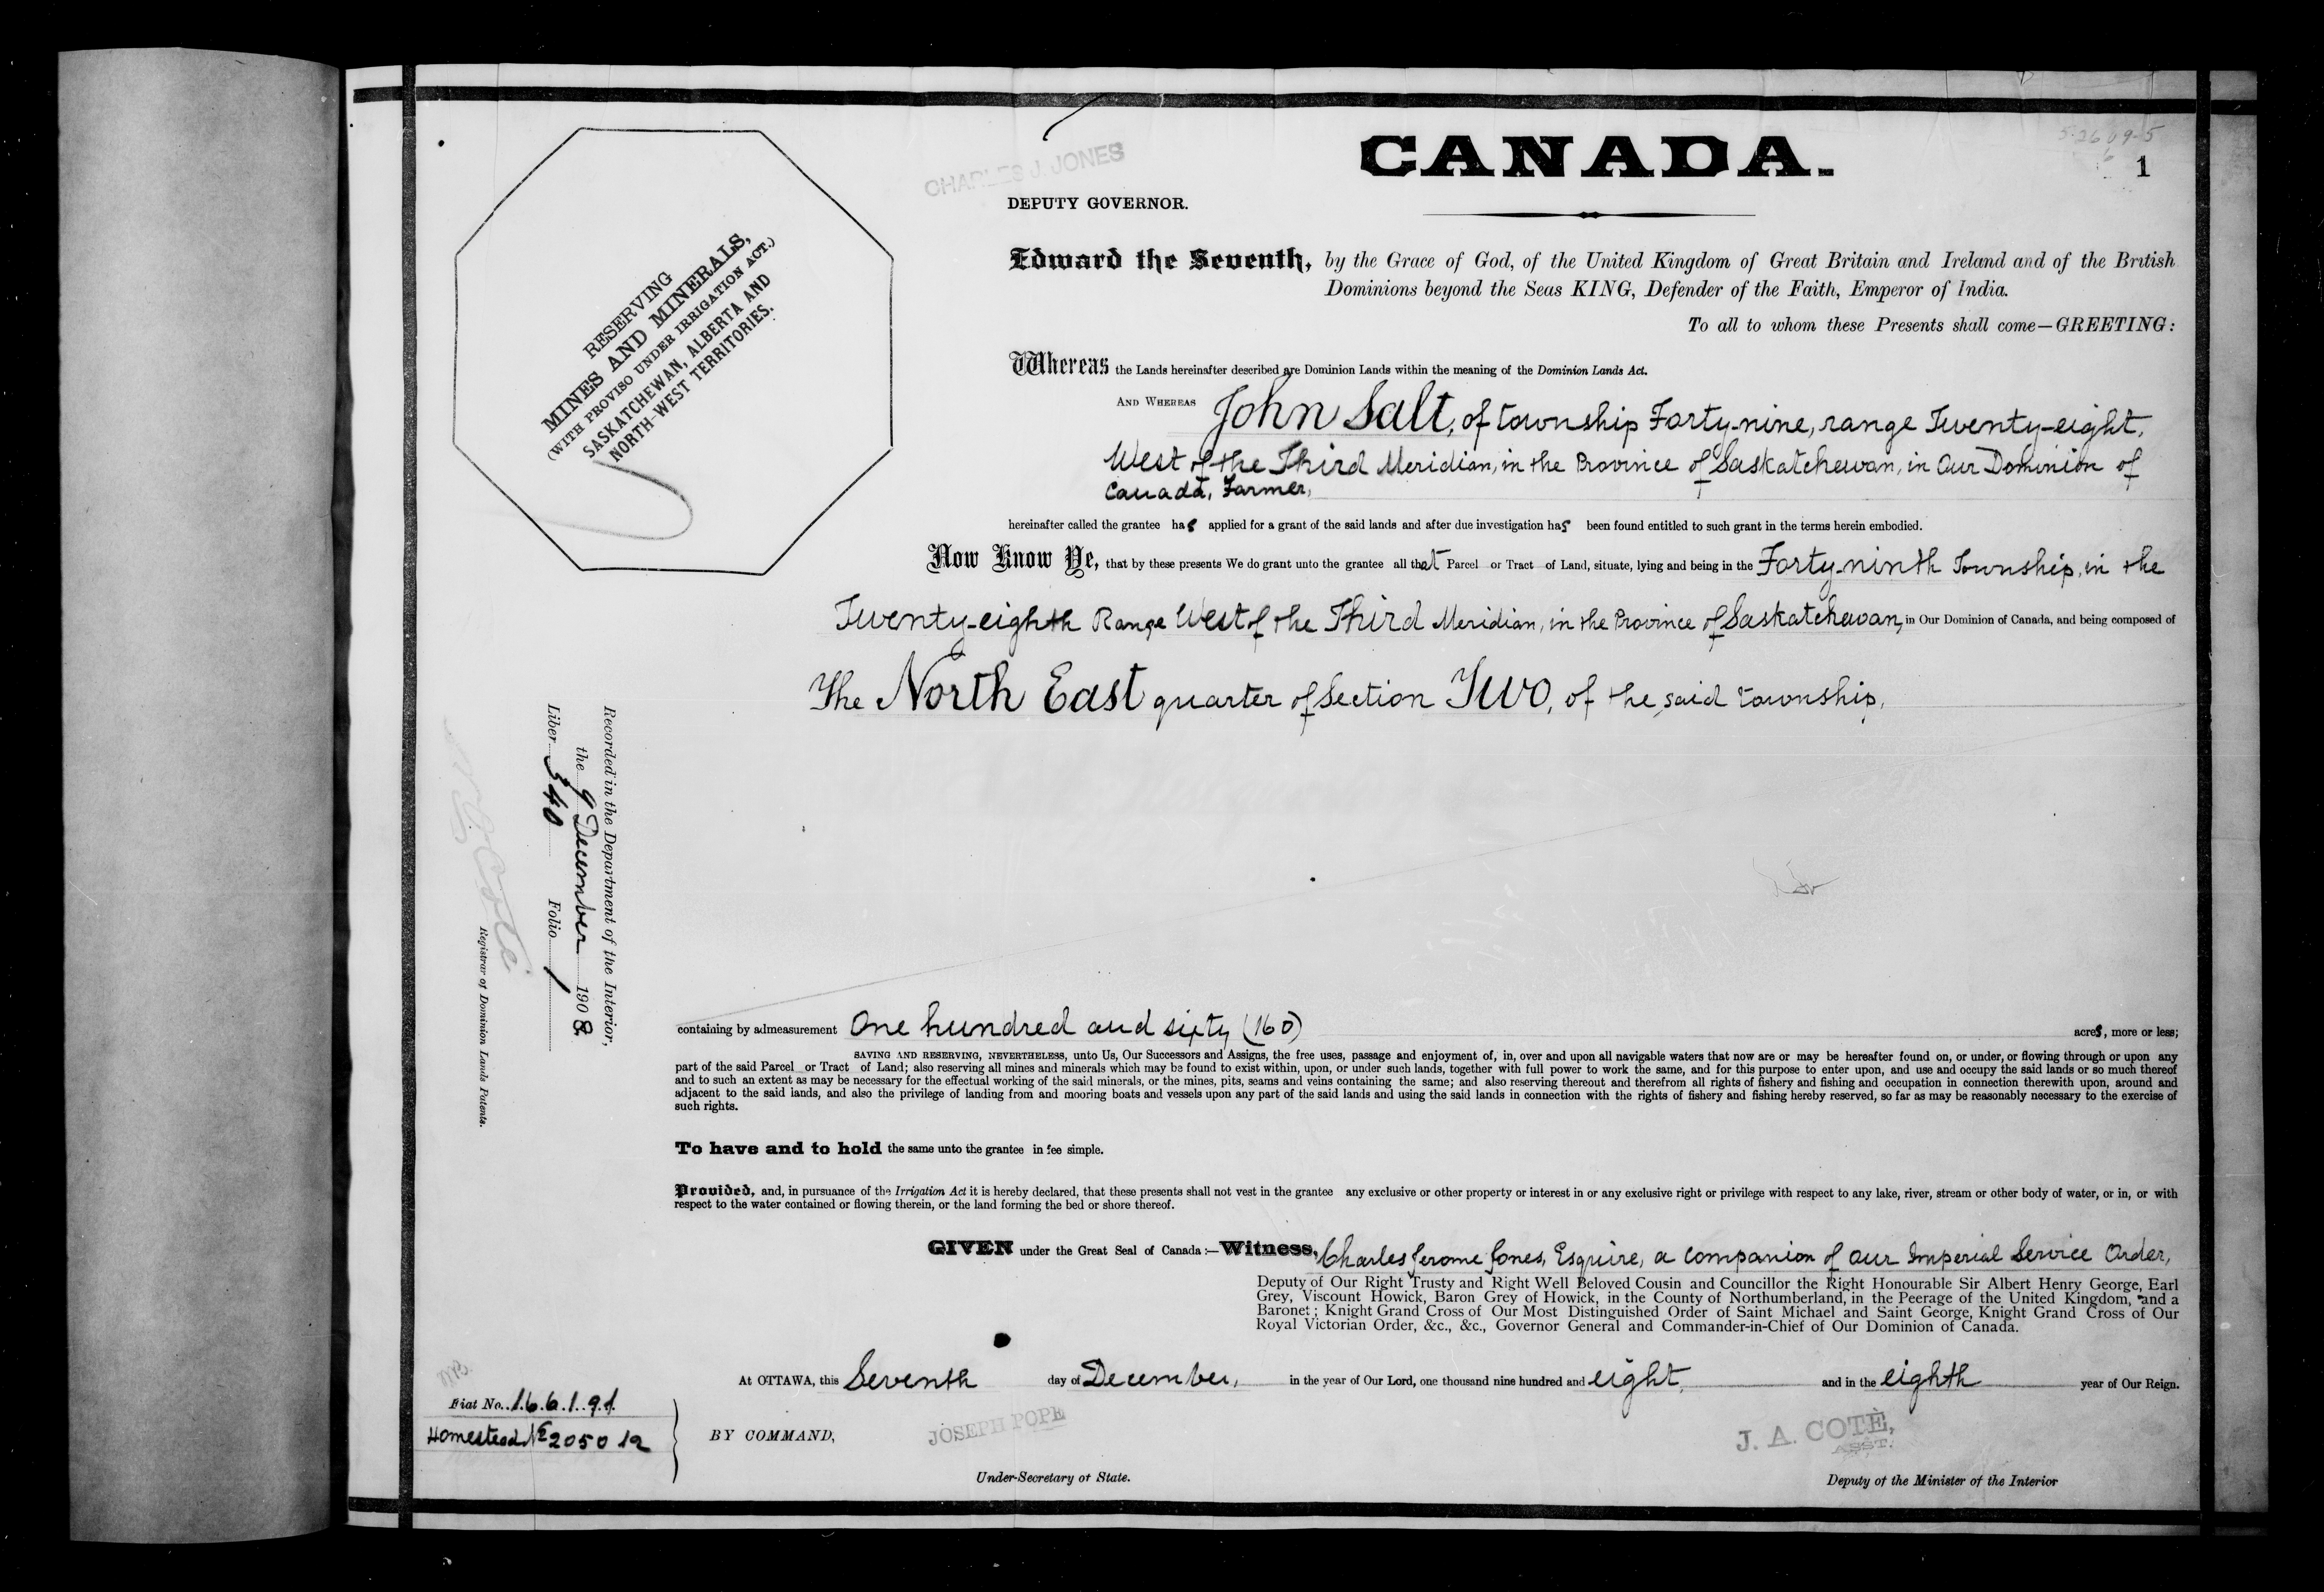 CANADA.
1
CHARLES J. JONES
DEPUTY GOVERNOR.
RESERVING
MINES AND MINERALS,
(WITH PROVISO UNDER IRRIGATION ACT.)
SASKATCHEWAN, ALBERTA AND
NORTH-WEST TERRITORIES.
Edward the Seventh, by the Grace of God, of the United Kingdom of Great Britain and Ireland and of the British
Dominions beyond the Seas KING, Defender of the Faith, Emperor of India.
To all to whom these Presents shall come—GREETING:
Whereas the Lands hereinafter described are Dominion Lands within the meaning of the Dominion Lands Act.
AND WHEREAS John Salt, of township Forty-nine, range Twenty-eight,
West of the Third Meridian, in the Province of Saskatchewan, in Our Dominion of
Canada, Farmer,
hereinafter called the grantee has applied for a grant of the said lands and after due investigation has been found entitled to such grant in the terms herein embodied.
Now Know Ye, that by these presents We do grant unto the grantee all that Parcel or Tract of Land, situate, lying and being in the Forty-ninth Township, in the
Twenty-eighth Range West of the Third Meridian, in the Province of Saskatchewan, in Our Dominion of Canada, and being composed of
The North East quarter of Section Two, of the said township,
containing by admeasurement One hundred and sixty (160) acres, more or less;
SAVING AND RESERVING, NEVERTHELESS, unto Us, Our Successors and Assigns, the free uses, passage and enjoyment of, in, over and upon all navigable waters that now are or may be hereafter found on, or under, or flowing through or upon any
part of the said Parcel or Tract of Land; also reserving all mines and minerals which may be found to exist within, upon, or under such lands, together with full power to work the same, and for this purpose to enter upon, and use and occupy the said lands or so much thereof
and to such an extent as may be necessary for the effectual working of the said minerals, or the mines, pits, seams and veins containing the same; and also reserving thereout and therefrom all rights of fishery and fishing and occupation in connection therewith upon, around and
adjacent to the said lands, and also the privilege of landing from and mooring boats and vessels upon any part of the said lands and using the said lands in connection with the rights of fishery and fishing hereby reserved, so far as may be reasonably necessary to the exercise of
such rights.
To have and to hold the same unto the grantee in fee simple.
Provided, and, in pursuance of the Irrigation Act it is hereby declared, that these presents shall not vest in the grantee any exclusive or other property or interest in or any exclusive right or privilege with respect to any lake, river, stream or other body of water, or in, or with
respect to the water contained or flowing therein, or the land forming the bed or shore thereof.
GIVEN under the Great Seal of Canada:—Witness, Charles Jerome Jones, Esquire, a companion of Our Imperial Service Order,
Deputy of Our Right Trusty and Right Well Beloved Cousin and Councillor the Right Honourable Sir Albert Henry George, Earl
Grey, Viscount Howick, Baron Grey of Howick, in the County of Northumberland, in the Peerage of the United Kingdom, and a
Baronet; Knight Grand Cross of Our Most Distinguished Order of Saint Michael and Saint George, Knight Grand Cross of Our
Royal Victorian Order, &c., &c., Governor General and Commander-in-Chief of Our Dominion of Canada.
At OTTAWA, this Seventh day of December, in the year of Our Lord, one thousand nine hundred and eight, and in the eighth year of Our Reign.
BY COMMAND,
JOSEPH POPE
Under-Secretary of State.
J. A. COTÈ,
ASST.
Deputy of the Minister of the Interior
Recorded in the Department of the Interior,
the 9 December 1908
Liber 340 Folio 1
N O Coté
Registrar of Dominion Lands Patents.
Fiat No. 166191
Homestead No 205012